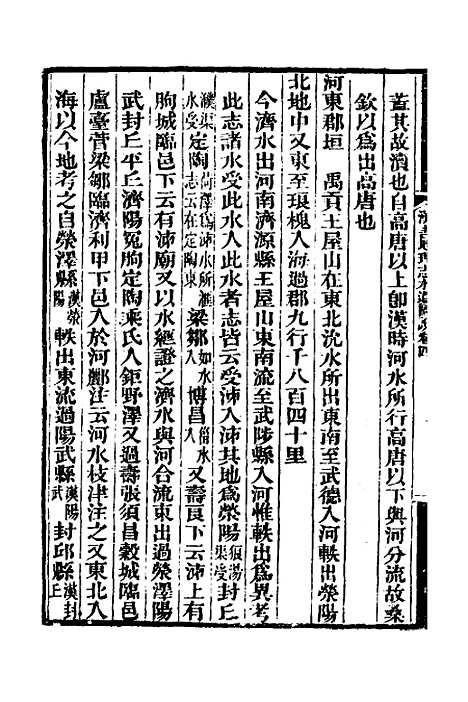 蓋其故瀆也自高唐以上卽漢時河水所行高唐以下與河分流故桑
欽以爲出高唐也
河東郡垣　禹貢王屋山在東北沇水所出東南至武德入河軼出滎陽
北地中又東至琅槐入海過郡九行千八百四十里
今濟水出河南濟源縣王屋山東南流至武陟縣入河惟軼出爲異考
此志諸水受此水人此水者志皆云受泲入泲其地爲滎陽狼湯渠受封丘
濮渠水受定陶荷澤爲泲水所匯志云在定陶東梁鄒如水入博昌時水入又壽良下云泲上有
朐城臨邑下云有泲廟又以水經證之濟水與河合流東出過滎澤陽
武封丘平丘濟陽冤朐定陶乘氏人鉅野澤又過壽張須昌穀城臨邑
盧臺菅梁鄒臨濟利甲下邑入於河酈注云河水枝津注之又東北入
海以今地考之自滎澤縣漢滎陽軼出東流過陽武縣漢陽武封邱縣漢封丘
漢書地理志水道圖說卷四